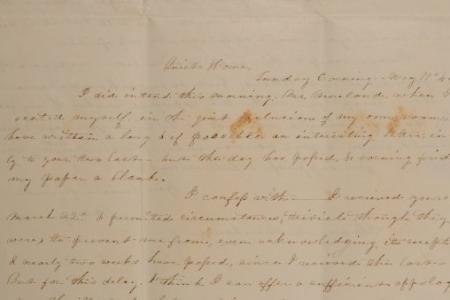 Quiet Home,
Sunday Evening. May 11th 4
I did intend this morning, Mr Moreland, when I
seated myself, in the quiet seclusion of my own room
have written a long & if possible an interesting letter in
ly to your two last— but the day has passed, & evening finds
my paper a blank.
I confess with I received yours
March 22d & permitted circumstances, trivial though they
were to prevent me from, even acknowledging its receipt
& nearly two weeks have passed, since I received this last
But for this delay, I think I can offer a sufficient apolog